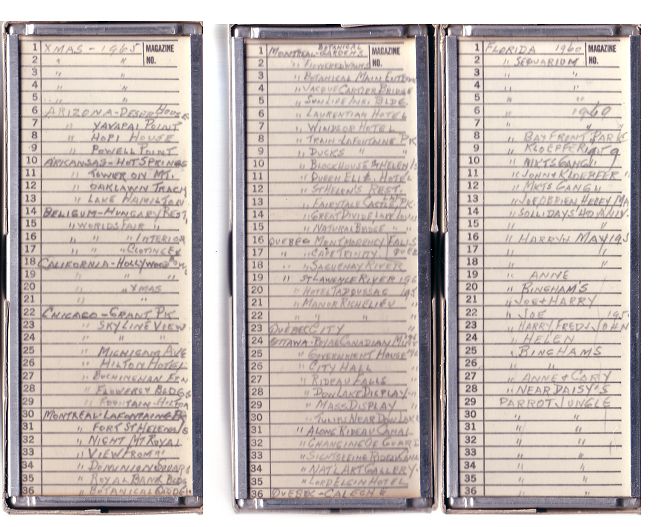 1 XMAS - 1965 MAGAZINE NO.
2 " "
3 " "
4 " "
5 " "
6 ARIZONA - DESERT HOUSE
7 " YAVAPAI POINT
8 " HOPI HOUSE
9 " POWELL POINT
10 ARKANSAS - HOT SPRINGS
11 " TOWER ON MT.
12 " OAKLAWN TRACK
13 " LAKE HAMILTON
14 BELIGUM - HUNGARY REST.
15 " WORLDS FAIR "
16 " " INTERIOR
17 " "
18 CALIFORNIA - HOLLYWOOD
19 " "
20 " " XMAS
21 " "
22 CHICAGO - GRANT PK.
23 " SKYLINE VIEW
24 " "
25 " MICHIGAN AVE
26 " HILTON HOTEL
27 " BUCHINGHAN FTN
28 " FLOWERS & BLDGS
29 " FOUNTAIN - HILTON
30 MONTREAL - LAFONTAINE PK
31 " FORT ST HELENS IS
32 " NIGHT MT ROYAL
33 " VIEW FROM "
34 " DOMINION SQUARE
35 " ROYAL BANK BLDG
36 " BOTANICAL
1 MONTREAL - BOTANICAL GARDENS
2 " FLOWERED WALKS
3 " BOTANICAL MAIN ENTRAN
4 " JACQUE CARTIER BRIDGE
5 " SUN LIFE INS. BLDG.
6 " LAURENTIAN HOTEL
7 " WINDSOR HOTEL
8 " TRAIN LAFONTAINE PK
9 " DUCKS "
10 " BLOCKHOUSE ST HELEN IS
11 " QUEEN ELIZ. HOTEL
12 " ST HELEN'S REST.
13 " FAIRYTALE CASTLE PK
14 " GREAT DIVIDE LAKE
15 " NATURAL BRIDGE "
16 QUEBEC MONTMORENCY FALLS
17 " CAPE TRINITY
18 " SAGUENAY RIVER
19 " ST LAWRENCE RIVER
20 " HOTEL TADOUSSAC
21 " MANOR RICHELIEU "
22 " " " "
23 QUEBEC CITY "
24 OTTAWA - ROYAL CANADIAN MINT
25 " GOVERNMENT HOUSE
26 " CITY HALL
27 " RIDEAU FALLS
28 " DOW LAKE DISPLAY
29 " MASS DISPLAY
30 " TULIPS NEAR DOW LAKE
31 " ALONG RIDEAU CANAL
32 " CHANGING OF GUARD
33 " SIGHTSEEING RIDEAU CANAL
34 " NAT'L ART GALLERY
35 " LORD ELGIN HOTEL
36 QUEBEC - CALECHE
1 FLORIDA 1960 MAGAZINE NO.
2 " SEQUARIUM "
3 " "
4 " "
5 " "
6 " 1960
7 " "
8 " BAYFRONT PARK
9 " KLOEPFER
10 " MKTS GANG
11 " JOHN & KLOEPFER "
12 " MKTS GANG
13 " JOE O'BRIEN HENRY
14 " SOLLIDAYS
15 " "
16 " HARRY MAY 195
17 " "
18 " "
19 " ANNE
20 " BINGHAM'S
21 " JOE & HARRY
22 " JOE
23 " HARRY FRED JOHN
24 " HELEN
25 " BINGHAMS
26 " "
27 " ANNE & CORY
28 " NEAR DAISY'S
29 PARROT JUNGLE
30 " "
31 " "
32 " "
33 " "
34 " "
35 " "
36 " "